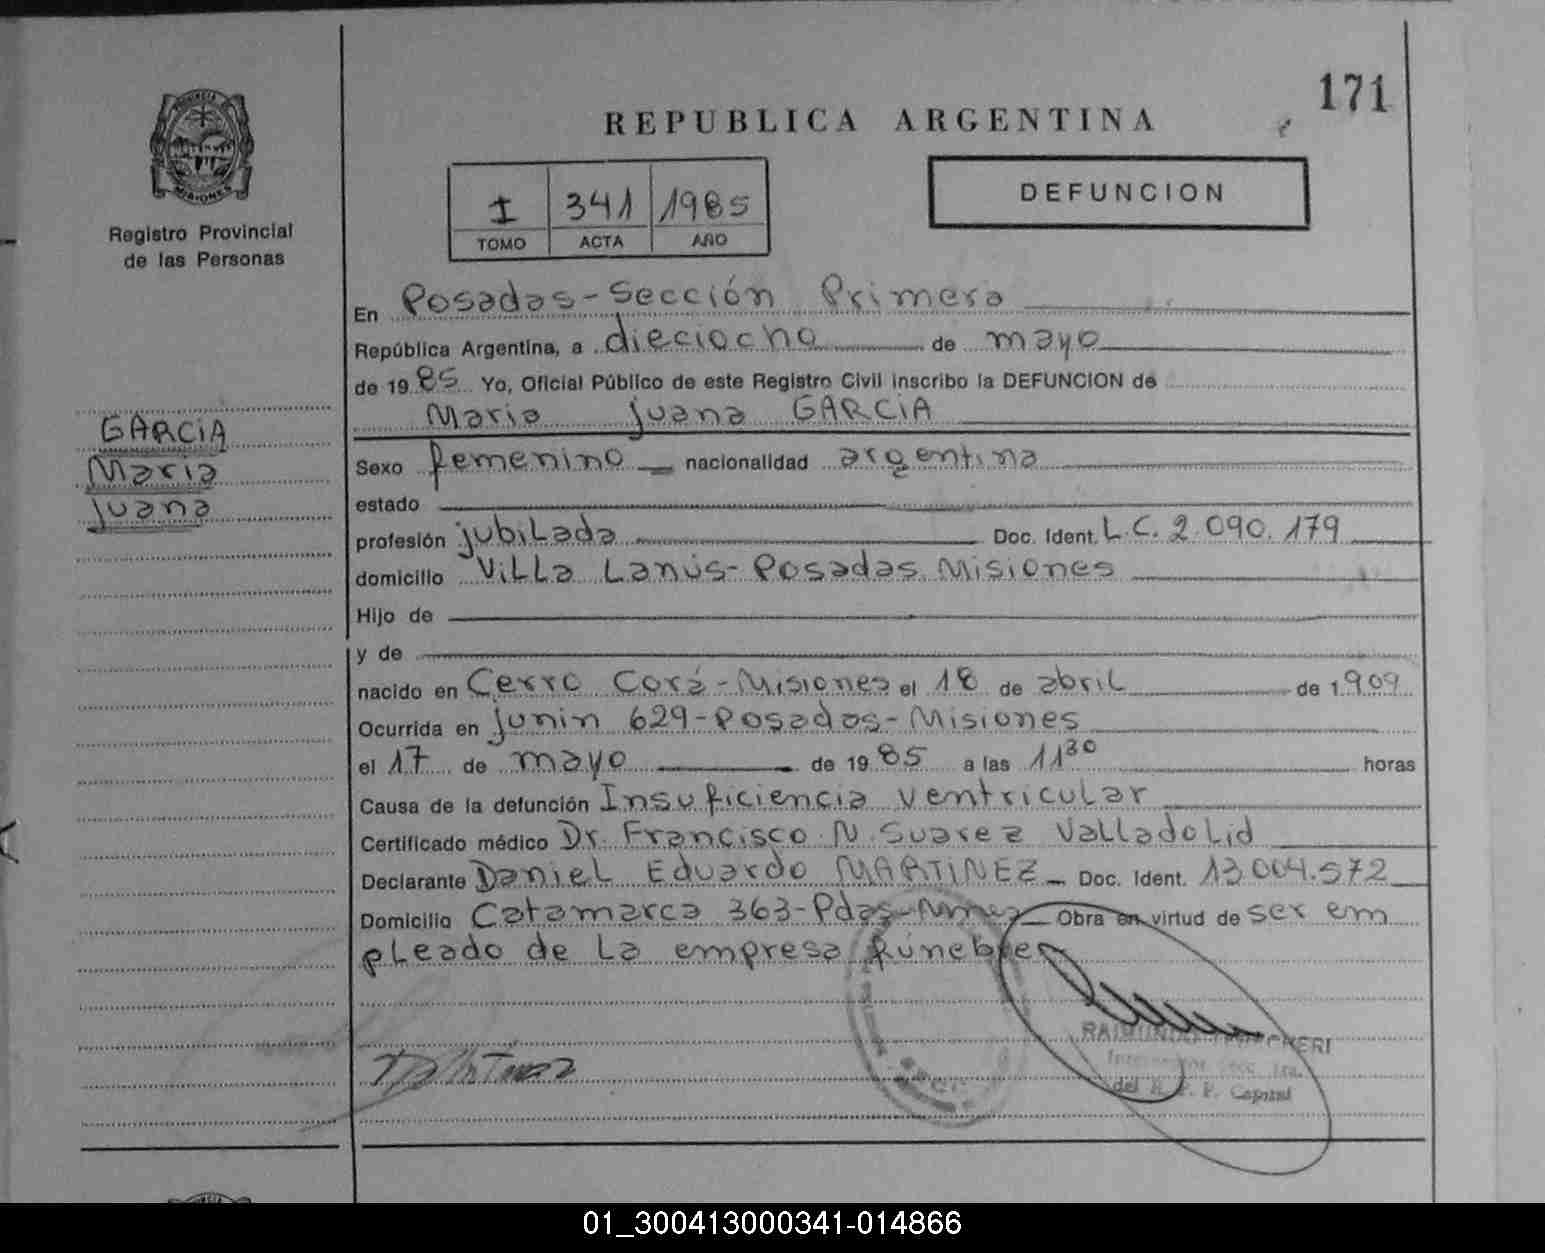 171
REPUBLICA ARGENTINA
PROVINCIA DE
MISIONES
Registro Provincial
de las Personas
I 341 1985
TOMO ACTA AÑO
DEFUNCION
En Posadas-Sección Primera
República Argentina, a dieciocho de mayo
de 1985 Yo, Oficial Público de este Registro Civil inscribo la DEFUNCION de
Maria Juana GARCIA
GARCIA
Maria
Juana
Sexo femenino nacionalidad argentina
estado
profesión jubilada Doc. Ident. L.C. 2.090.179
domicilio Villa Lanús-Posadas Misiones
Hijo de
y de
nacido en Cerro Corá-Misiones el 18 de abril de 1.909
Ocurrida en Junin 629-Posadas-Misiones
el 17 de mayo de 1985 a las 11 30 horas
Causa de la defunción Insuficiencia ventricular
Certificado médico Dr. Francisco N. Suarez Valladolid
Declarante Daniel Eduardo MARTINEZ Doc. Ident. 13.004.572
Domicilio Catamarca 363-Pdas- Obra en virtud de ser em
pleado de la empresa fúnebre
RAIMUNDO
del R. P. P. Capital
01_300413000341-014866